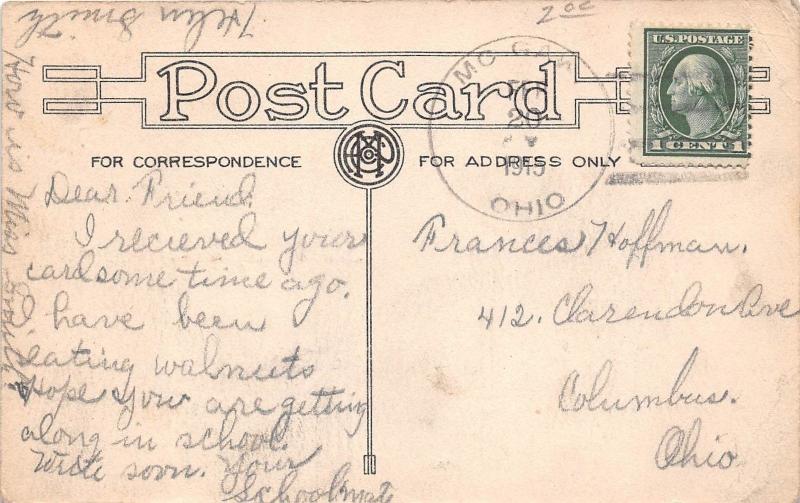 Helen Smith
20¢
U.S. POSTAGE
1 CENT 1
OHIO
20
1915
Post Card
FOR CORRESPONDENCE
FOR ADDRESS ONLY
Dear Friend.
I recieved your
card some time ago.
I have been
eating walnuts
Hope you are getting
along in school.
Write soon. Your
Schoolmate
How is Miss
Frances Hoffman.
412. Clarendon Ave
Columbus.
Ohio